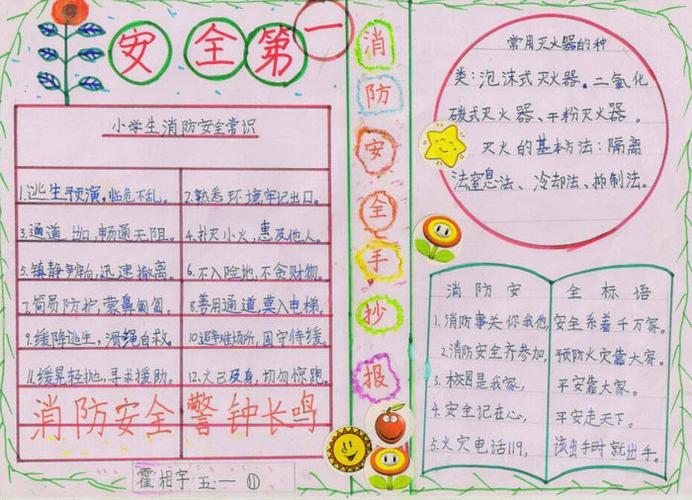 安全第一
小学生消防安全常识
1.逃生预演,临危不乱。
2.熟悉环境,牢记出口。
3.通道出口,畅通无阻。
4.扑灭小火,惠及他人。
5.镇静辨向,迅速撤离。
6.不入险地,不贪财物。
7.简易防护,蒙鼻匍匐。
8.善用通道,莫入电梯。
9.缓降逃生,滑绳自救。
10.避难场所,固守待援。
11.缓晃轻抛,寻求援助。
12.火已及身,切勿惊跑。
消防安全 警钟长鸣
霍相宇 五·一 ⑪
消防安全手抄报
常用灭火器的种
类:泡沫式灭火器。二氧化
碳式灭火器、干粉灭火器。
灭火的基本方法:隔离
法窒息法、冷却法、抑制法。
消防安全标语
1.消防事关你我他,安全系着千万家。
2.消防安全齐参加,预防火灾靠大家。
3.校园是我家,平安靠大家。
4.安全记在心,平安走天下。
5.火灾电话119,该出手时就出手。